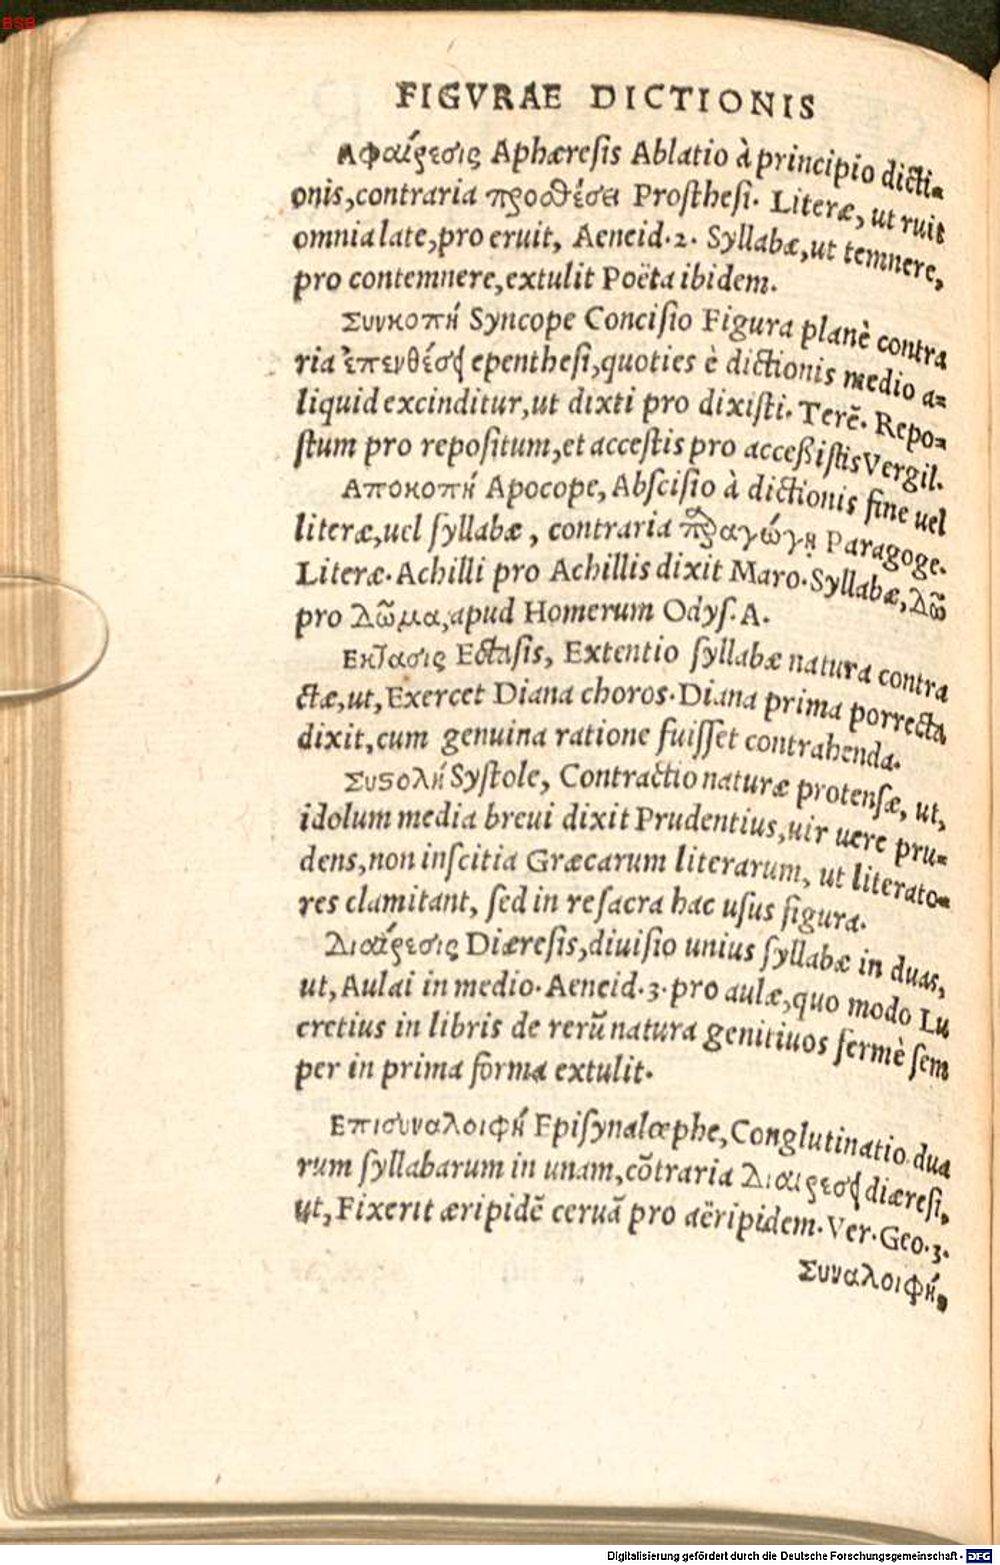 BSB
FIGVRAE DICTIONIS
Αφαίρεσις Aphæresis Ablatio à principio dicti=
onis,contraria προσθέσει Prosthesi. Literæ, ut ruit
omnia late,pro eruit, Aeneid.2. Syllabæ,ut temnere,
pro contemnere,extulit Poëta ibidem.
Συνκοπή Syncope Concisio Figura planè contra
ria ἐπενθέσει epenthesi,quoties è dictionis medio a=
liquid excinditur,ut dixti pro dixisti. Terẽ. Repo=
stum pro repositum,et accestis pro acceßistis Vergil.
Αποκοπή Apocope, Abscisio à dictionis fine uel
literæ,uel syllabæ, contraria παραγώγῃ Paragoge.
Literæ. Achilli pro Achillis dixit Maro. Syllabæ, λῶ
pro λῶμα,apud Homerum Odys. A.
Εκτασις Ectasis, Extentio syllabæ natura contra
ctæ,ut, Exercet Diana choros. Diana prima porrecta
dixit,cum genuina ratione fuisset contrahenda.
Συϛολή Systole, Contractio naturæ protensæ, ut,
idolum media breui dixit Prudentius,uir uere pru=
dens,non inscitia Græcarum literarum, ut literato=
res clamitant, sed in re sacra hac usus figura.
Διαίρεσις Diæresis,diuisio unius syllabæ in duas,
ut, Aulai in medio. Aeneid.3. pro aulæ,quo modo Lu
cretius in libris de rerũ natura genitiuos fermè sem
per in prima forma extulit.
Επισυναλοιφή Episynalœphe, Conglutinatio dua
rum syllabarum in unam,cõtraria Διαιρεσει diæresi,
ut, Fixerit æripidẽ ceruã pro aëripidem. Ver. Geo.3.
Συναλοιφή,
Digitalisierung gefördert durch die Deutsche Forschungsgemeinschaft - DFG